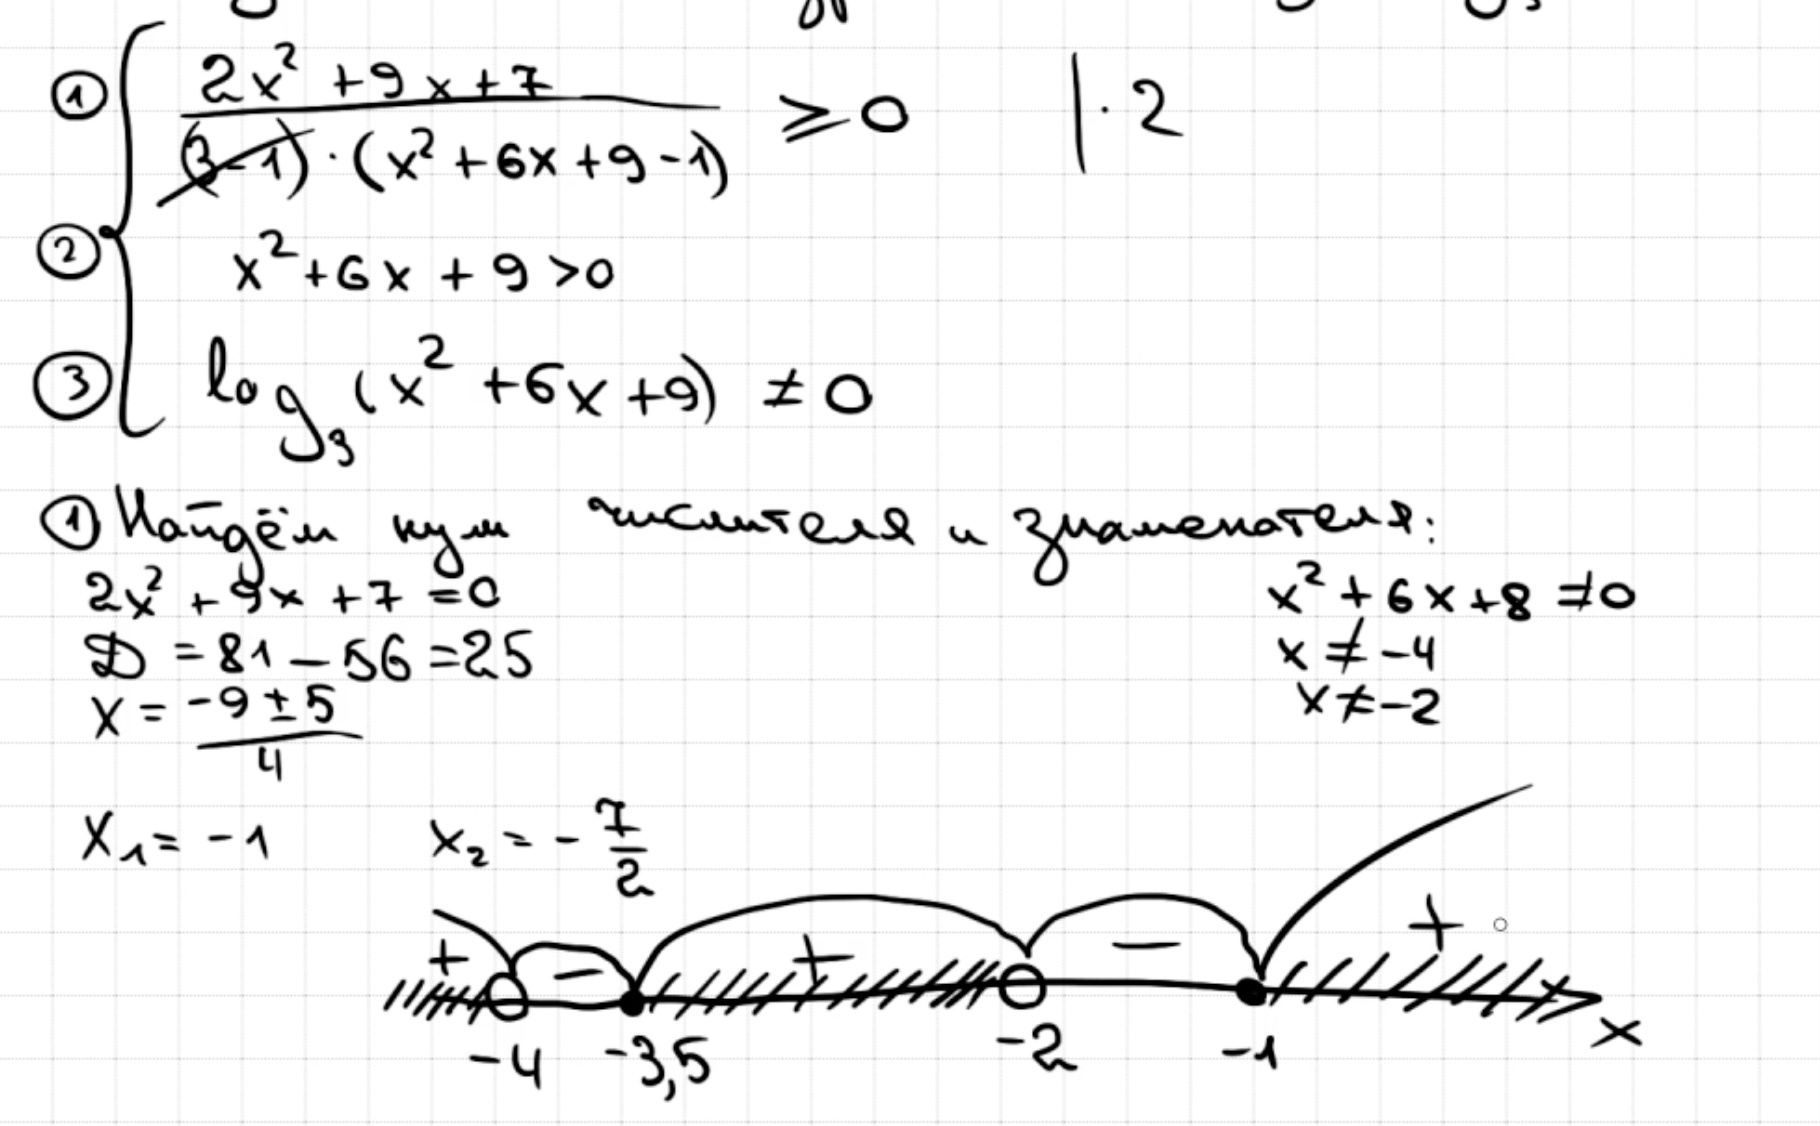 ① 2x² + 9x + 7
(3-1) · (x² + 6x + 9 - 1) ≥ 0 | · 2
② x² + 6x + 9 > 0
③ log₃ (x² + 6x + 9) ≠ 0
① Найдём нули числителя и знаменателя:
2x² + 9x + 7 = 0
D = 81 - 56 = 25
x = -9 ± 5
4
x² + 6x + 8 ≠ 0
x ≠ -4
x ≠ -2
x₁ = -1 x₂ = - 7/2
+ - + - +
-4 -3,5 -2 -1 x